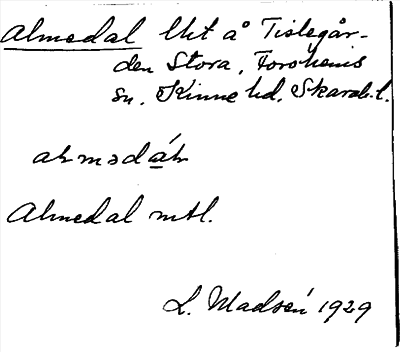 Almedal lht å Tislegår-
den Stora, Forshems
sn. Kinne hd. Skarab. l.
Almedal mtl.
L. Madsén 1929